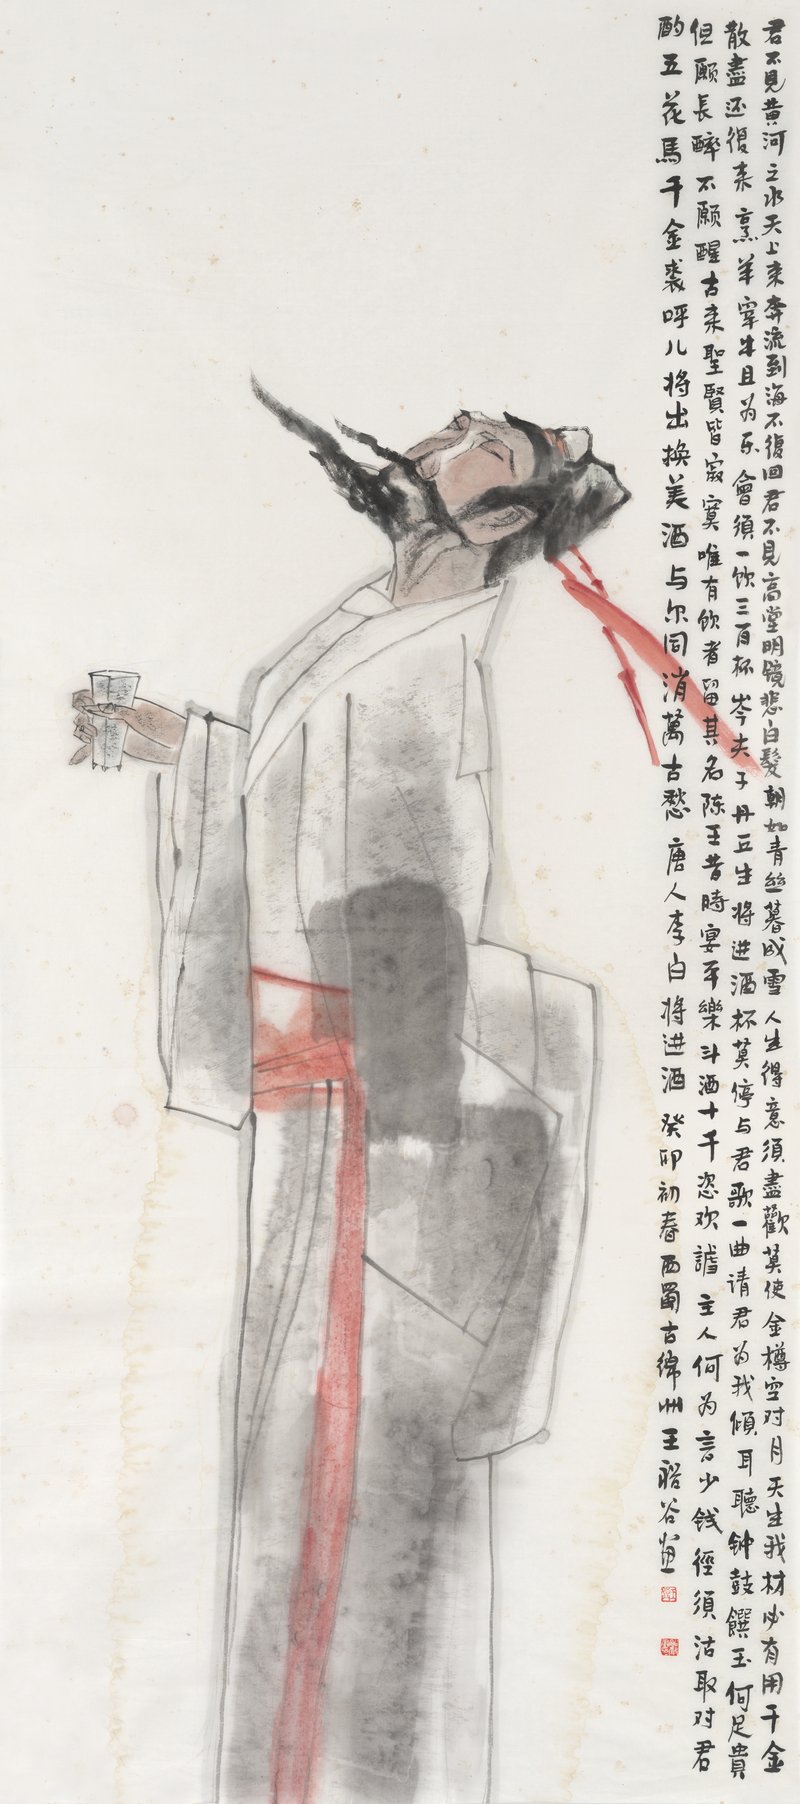 君不見黄河之水天上来奔流到海不復回君不見高堂明镜悲白髮朝如青丝暮成雪人生得意須盡歡莫使金樽空对月天生我材必有用千金
散盡还復来烹羊宰牛且为乐會須一饮三百杯岑夫子丹丘生将进酒杯莫停与君歌一曲请君为我傾耳聽钟鼓饌玉何足貴
但願長醉不願醒古来聖賢皆寂寞唯有饮者留其名陈王昔時宴平樂斗酒十千恣欢謔主人何为言少钱徑須沽取对君
酌五花馬千金裘呼儿将出换美酒与尔同消萬古愁 唐人李白将进酒 癸卯初春西蜀古绵州王谷畫